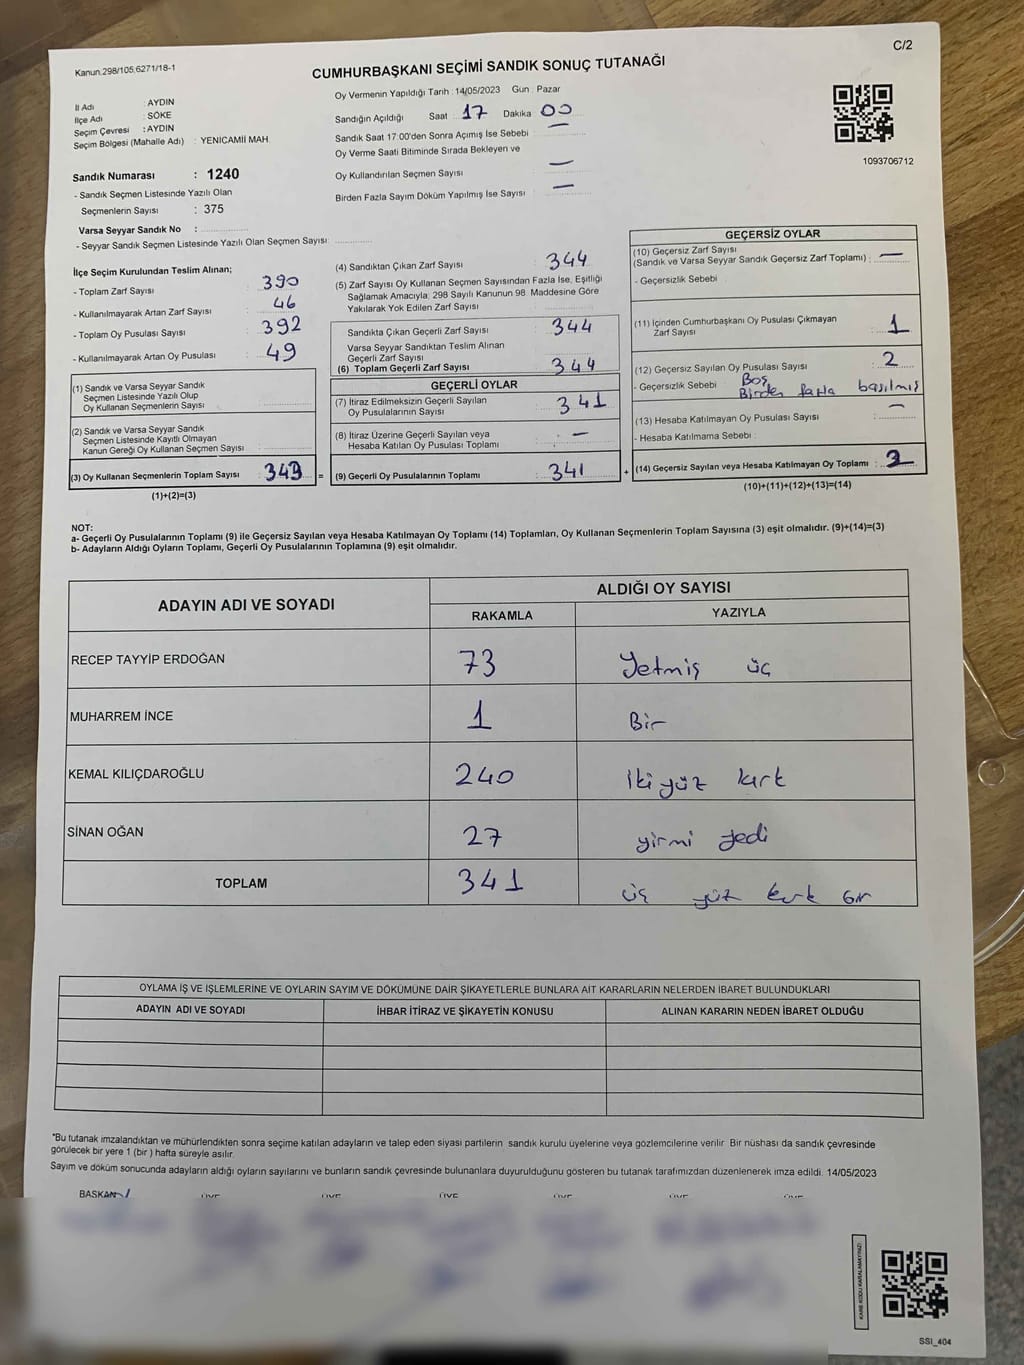 C/2
Kanun.298/105,6271/18-1
CUMHURBAŞKANI SEÇİMİ SANDIK SONUÇ TUTANAĞI
İl Adı : AYDIN
İlçe Adı : SÖKE
Seçim Çevresi : AYDIN
Seçim Bölgesi (Mahalle Adı) : YENICAMİİ MAH.
Oy Vermenin Yapıldığı Tarih : 14/05/2023 Gün : Pazar
Sandığın Açıldığı Saat 17 Dakika 00
Sandık Saat 17:00'den Sonra Açımış İse Sebebi —
Oy Verme Saati Bitiminde Sırada Bekleyen ve
Oy Kullandırılan Seçmen Sayısı —
Birden Fazla Sayım Döküm Yapılmış İse Sayısı —
1093706712
Sandık Numarası : 1240
- Sandık Seçmen Listesinde Yazılı Olan
Seçmenlerin Sayısı : 375
Varsa Seyyar Sandık No :
- Seyyar Sandık Seçmen Listesinde Yazılı Olan Seçmen Sayısı :
İlçe Seçim Kurulundan Teslim Alınan;
- Toplam Zarf Sayısı : 390
- Kullanılmayarak Artan Zarf Sayısı : 46
- Toplam Oy Pusulası Sayısı : 392
- Kullanılmayarak Artan Oy Pusulası : 49
(1) Sandık ve Varsa Seyyar Sandık
Seçmen Listesinde Yazılı Olup
Oy Kullanan Seçmenlerin Sayısı
(2) Sandık ve Varsa Seyyar Sandık
Seçmen Listesinde Kayıtlı Olmayan
Kanun Gereği Oy Kullanan Seçmen Sayısı
(3) Oy Kullanan Seçmenlerin Toplam Sayısı : 343 =
(1)+(2)=(3)
(4) Sandıktan Çıkan Zarf Sayısı : 344
(5) Zarf Sayısı Oy Kullanan Seçmen Sayısından Fazla İse, Eşitliği
Sağlamak Amacıyla; 298 Sayılı Kanunun 98. Maddesine Göre
Yakılarak Yok Edilen Zarf Sayısı :
Sandıkta Çıkan Geçerli Zarf Sayısı : 344
Varsa Seyyar Sandıktan Teslim Alınan
Geçerli Zarf Sayısı :
(6) Toplam Geçerli Zarf Sayısı : 344
GEÇERLİ OYLAR
(7) İtiraz Edilmeksizin Geçerli Sayılan
Oy Pusulalarının Sayısı : 341
(8) İtiraz Üzerine Geçerli Sayılan veya
Hesaba Katılan Oy Pusulası Toplamı : —
(9) Geçerli Oy Pusulalarının Toplamı : 341 +
GEÇERSİZ OYLAR
(10) Geçersiz Zarf Sayısı
(Sandık ve Varsa Seyyar Sandık Geçersiz Zarf Toplamı) : —
- Geçersizlik Sebebi
(11) İçinden Cumhurbaşkanı Oy Pusulası Çıkmayan
Zarf Sayısı : 1
(12) Geçersiz Sayılan Oy Pusulası Sayısı : 2
- Geçersizlik Sebebi Boş
Birden fazla basılmış
(13) Hesaba Katılmayan Oy Pusulası Sayısı : —
- Hesaba Katılmama Sebebi :
(14) Geçersiz Sayılan veya Hesaba Katılmayan Oy Toplamı :
(10)+(11)+(12)+(13)=(14)
NOT:
a- Geçerli Oy Pusulalarının Toplamı (9) ile Geçersiz Sayılan veya Hesaba Katılmayan Oy Toplamı (14) Toplamları, Oy Kullanan Seçmenlerin Toplam Sayısına (3) eşit olmalıdır. (9)+(14)=(3)
b- Adayların Aldığı Oyların Toplamı, Geçerli Oy Pusulalarının Toplamına (9) eşit olmalıdır.
ADAYIN ADI VE SOYADI
ALDIĞI OY SAYISI
RAKAMLA YAZIYLA
RECEP TAYYİP ERDOĞAN 73 Yetmiş üç
MUHARREM İNCE 1 Bir
KEMAL KILIÇDAROĞLU 240 İki yüz kırk
SİNAN OĞAN 27 yirmi yedi
TOPLAM 341 üç yüz kırk bir
OYLAMA İŞ VE İŞLEMLERİNE VE OYLARIN SAYIM VE DÖKÜMÜNE DAİR ŞİKAYETLERLE BUNLARA AİT KARARLARIN NELERDEN İBARET BULUNDUKLARI
ADAYIN ADI VE SOYADI İHBAR İTİRAZ VE ŞİKAYETİN KONUSU ALINAN KARARIN NEDEN İBARET OLDUĞU
"Bu tutanak imzalandıktan ve mühürlendikten sonra seçime katılan adayların ve talep eden siyasi partilerin sandık kurulu üyelerine veya gözlemcilerine verilir. Bir nüshası da sandık çevresinde
görülecek bir yere 1 (bir) hafta süreyle asılır.
Sayım ve döküm sonucunda adayların aldığı oyların sayılarını ve bunların sandık çevresinde bulunanlara duyurulduğunu gösteren bu tutanak tarafımızdan düzenlenerek imza edildi. 14/05/2023
BAŞKAN ÜYE ÜYE ÜYE ÜYE ÜYE ÜYE
KARE KODU KARALAMAYINIZ!
SSI_404